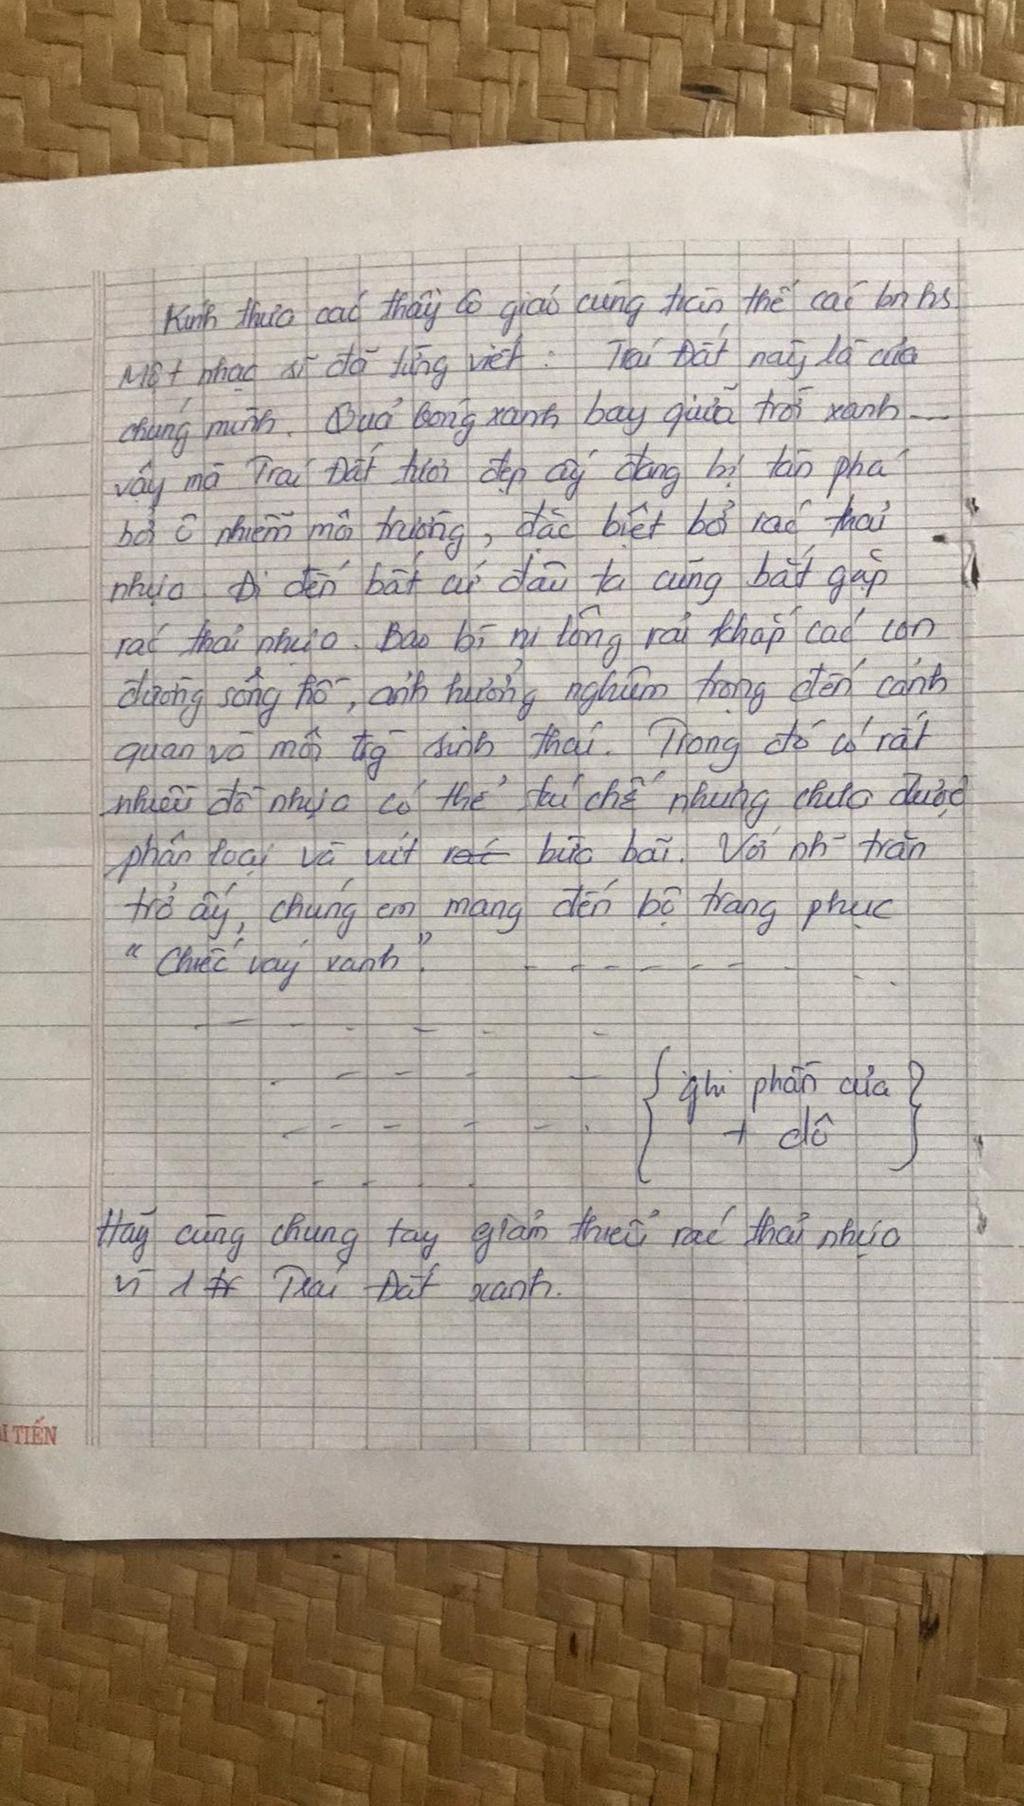 Kính thưa các thầy cô giáo cùng toàn thể các bn hs.
Một nhạc sĩ đã từng viết: Trái Đất này là của
chúng mình. Quả bóng xanh bay giữa trời xanh...
vậy mà Trái Đất tươi đẹp ấy đang bị tàn phá
bởi ô nhiễm môi trường, đặc biệt bởi rác thải
nhựa. Đi đến bất cứ đâu ta cũng bắt gặp
rác thải nhựa. Bao bì ni lông rải khắp các con
đường sông hồ, ảnh hưởng nghiêm trọng đến cảnh
quan và môi trg sinh thái. Trong đó có rất
nhiều đồ nhựa có thể tái chế nhưng chưa được
phân loại và vứt rác bừa bãi. Với nh~ trăn
trở ấy, chúng em mang đến bộ trang phục
"Chiếc váy xanh".
{ghi phần của}
+ đô
Hãy cùng chung tay giảm thiểu rác thải nhựa
vì 1 Trái Đất xanh.
TIẾN